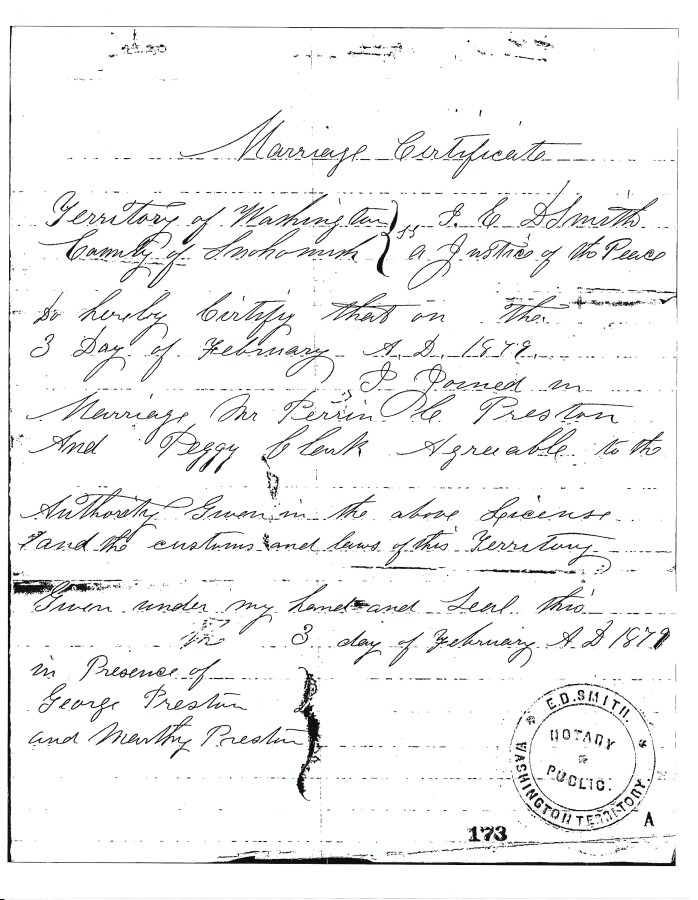 Marriage Certificate
Territory of Washington } ss I. E D Smith
County of Snohomish } a Justice of the Peace
Do hereby Certify that on the
3 Day of February A. D. 1879.
I Joined in
Marriage Mr Perrin C Preston
And Peggy Clark Agreeable to the
Authority Given in the above License
and the customs and laws of this Territory
Given under my hand and Seal this
3 day of February A D 1879
in Presence of
George Preston
and Marthy Preston
E.D. SMITH.
NOTARY
PUBLIC.
WASHINGTON TERRITORY.
A
173